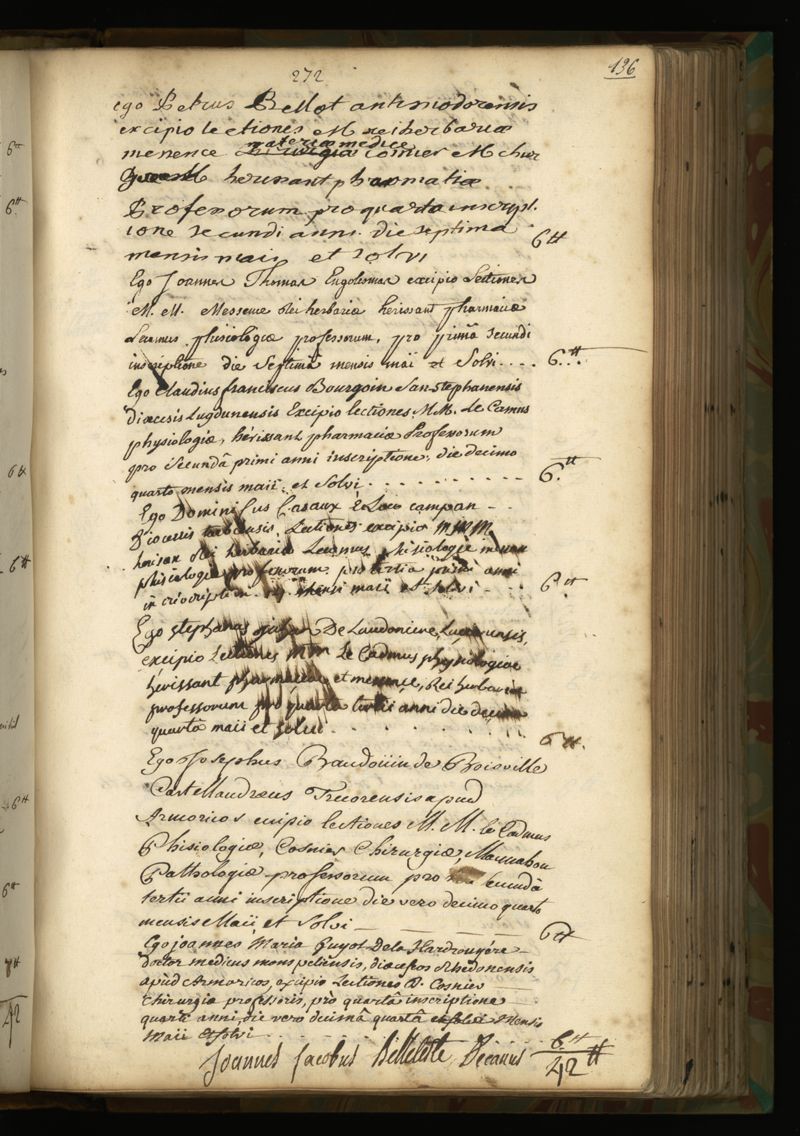 272
136
ego Petrus Bellot antmodorensis
excipio lectiones M rei herbariæ
materiæ medice
menence Chirurgia Cosnier M chir
M herissant pharmatiæ
Professorum pro quarta inscript.
ione secundi anni. die septima
mensis maij et solvi 6 ₶
Ego Joannes Thomas Engolesmas excipio Lectiones
M. M. Messence Rei herbariæ herissant pharmaciæ
Lecamus phisiologiæ professorum, pro primâ secundi
inscriptione die Septimâ mensis maïi et Solvi.... 6 ₶
Ego Claudius franciscus Bourgoin San-stephanensis
diœcesis Lugdunensis Excipio lectiones M.M. Le Camus
physiologiæ, hérissant pharmaciæ Professorum
pro secundâ primi anni inscriptione, die decimo
quarto mensis maii, et Solvi 6. ₶
Ego Dominicus Casaux è Loco campan
Dioecesis tarbiensis Lectiones excipio MMM
Rei herbariæ Lecamus phisiologie
phisiologiæ professorum pro tertia primi anni
inscription mensi maii et Solvi 6 ₶
Ego stephanus De Laudoniere,
excipio Lectiones MM Le Cadmus physiologiæ
hérissant pharmaciæ et menence, Rei herbariæ
professorum pro quarta tertii anni die decima
quartâ maii et solui 6 ₶.
Ego Josephus Baudoüin de Boisville
Castellaudræus Trecorensis apud
Armoricos excipio lectiones M. M. le Cadmus
Phisiologiæ, Cosnier Chirurgiæ, Maunabou
Pathologiæ professorum pro secundâ
tertii anni inscriptione die vero decimo quarto
mensis Maii et Solvi 6 ₶
Ego joannes Maria Guyot De la Hardrouyére
doctor medicus monspeliensis, diœceseos Rhedonensis
apud Armoricos, excipio Lectiones D. Cosnier
Chirurgiæ professoris, prò quartâ inscriptione
quarti anni, die vero decimâ quartâ Mensis
Maii et Solvi 6 ₶
Joannes Jacobus Belleteste Decanus 42 ₶